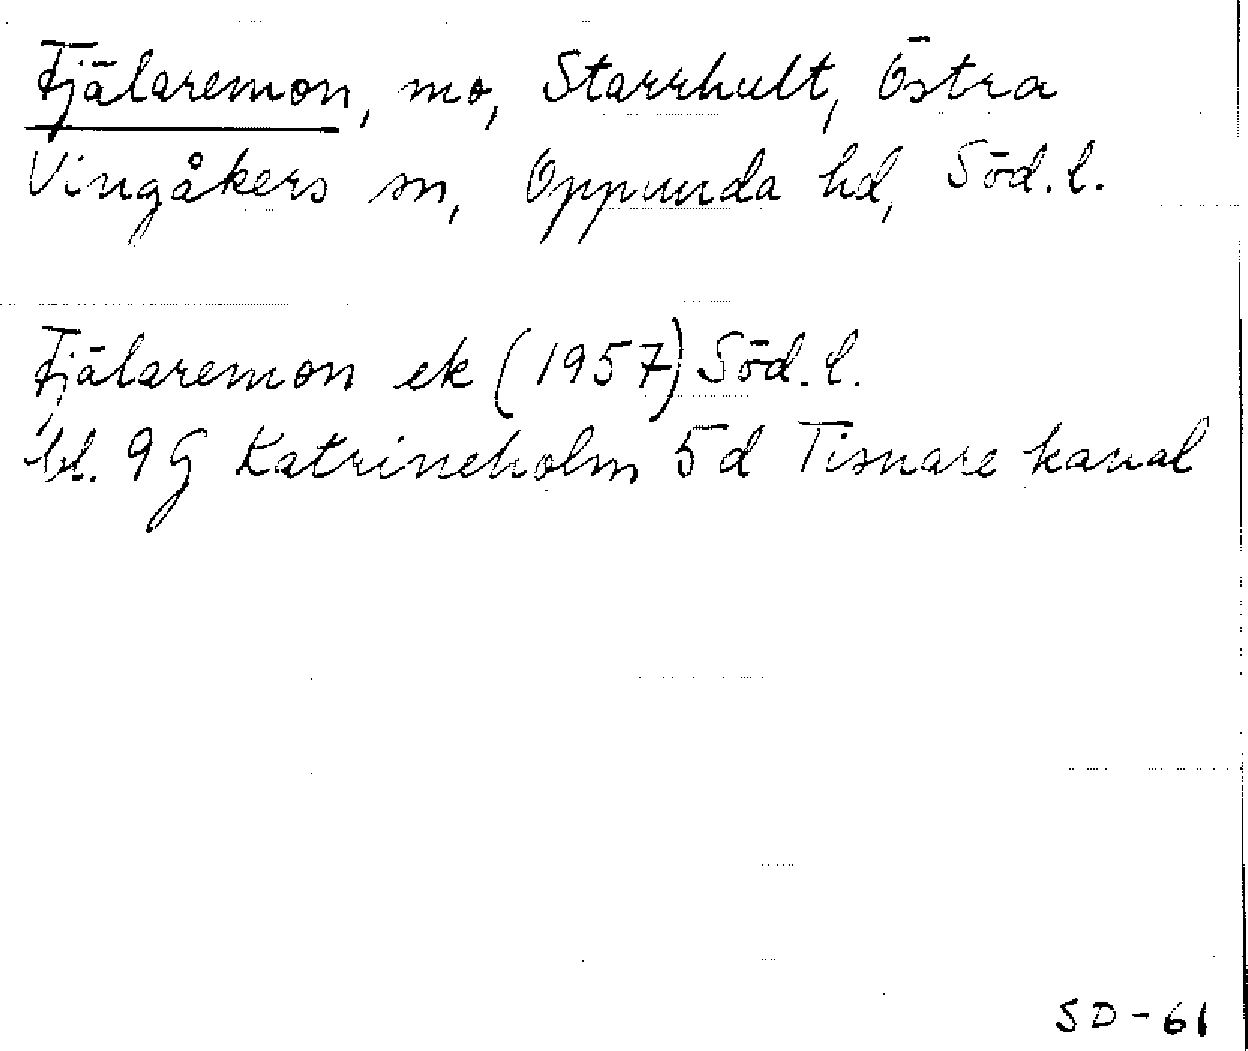 Fjälaremon, mo, Starrhult, Östra
Vingåkers sn, Oppunda hd, Söd. l.
Fjälaremon ek (1957) Söd. l.
bl. 9G Katrineholm 5d Tisnare kanal
SD-61